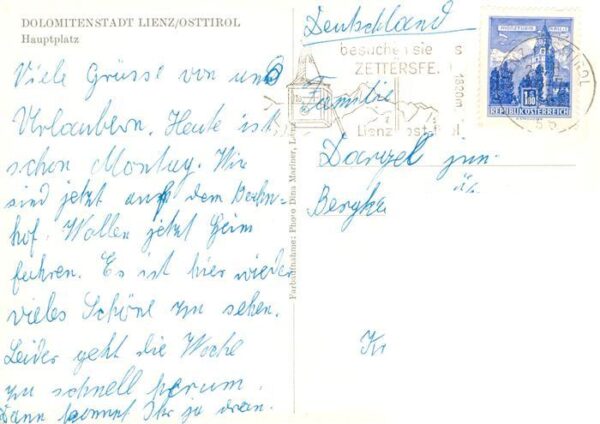 DOLOMITENSTADT LIENZ/OSTTIROL
Hauptplatz
Viele Grüsse von uns
Urlaubern. Heute ist
schon Montag. Wir
sind jetzt auf dem Bahn-
hof. Wollen jetzt heim
fahren. Es ist hier wieder
vieles Schöne zu sehen.
Leider geht die Woche
zu schnell herum.
Dann kommt Ihr ja dran.
Farbaufnahme: Photo Dina Mariner, Lienz
Deutschland
besuchen sie
ZETTERSFE
Lienz ost
Familie
jun.
Kr
1.80
REPUBLIK ÖSTERREICH